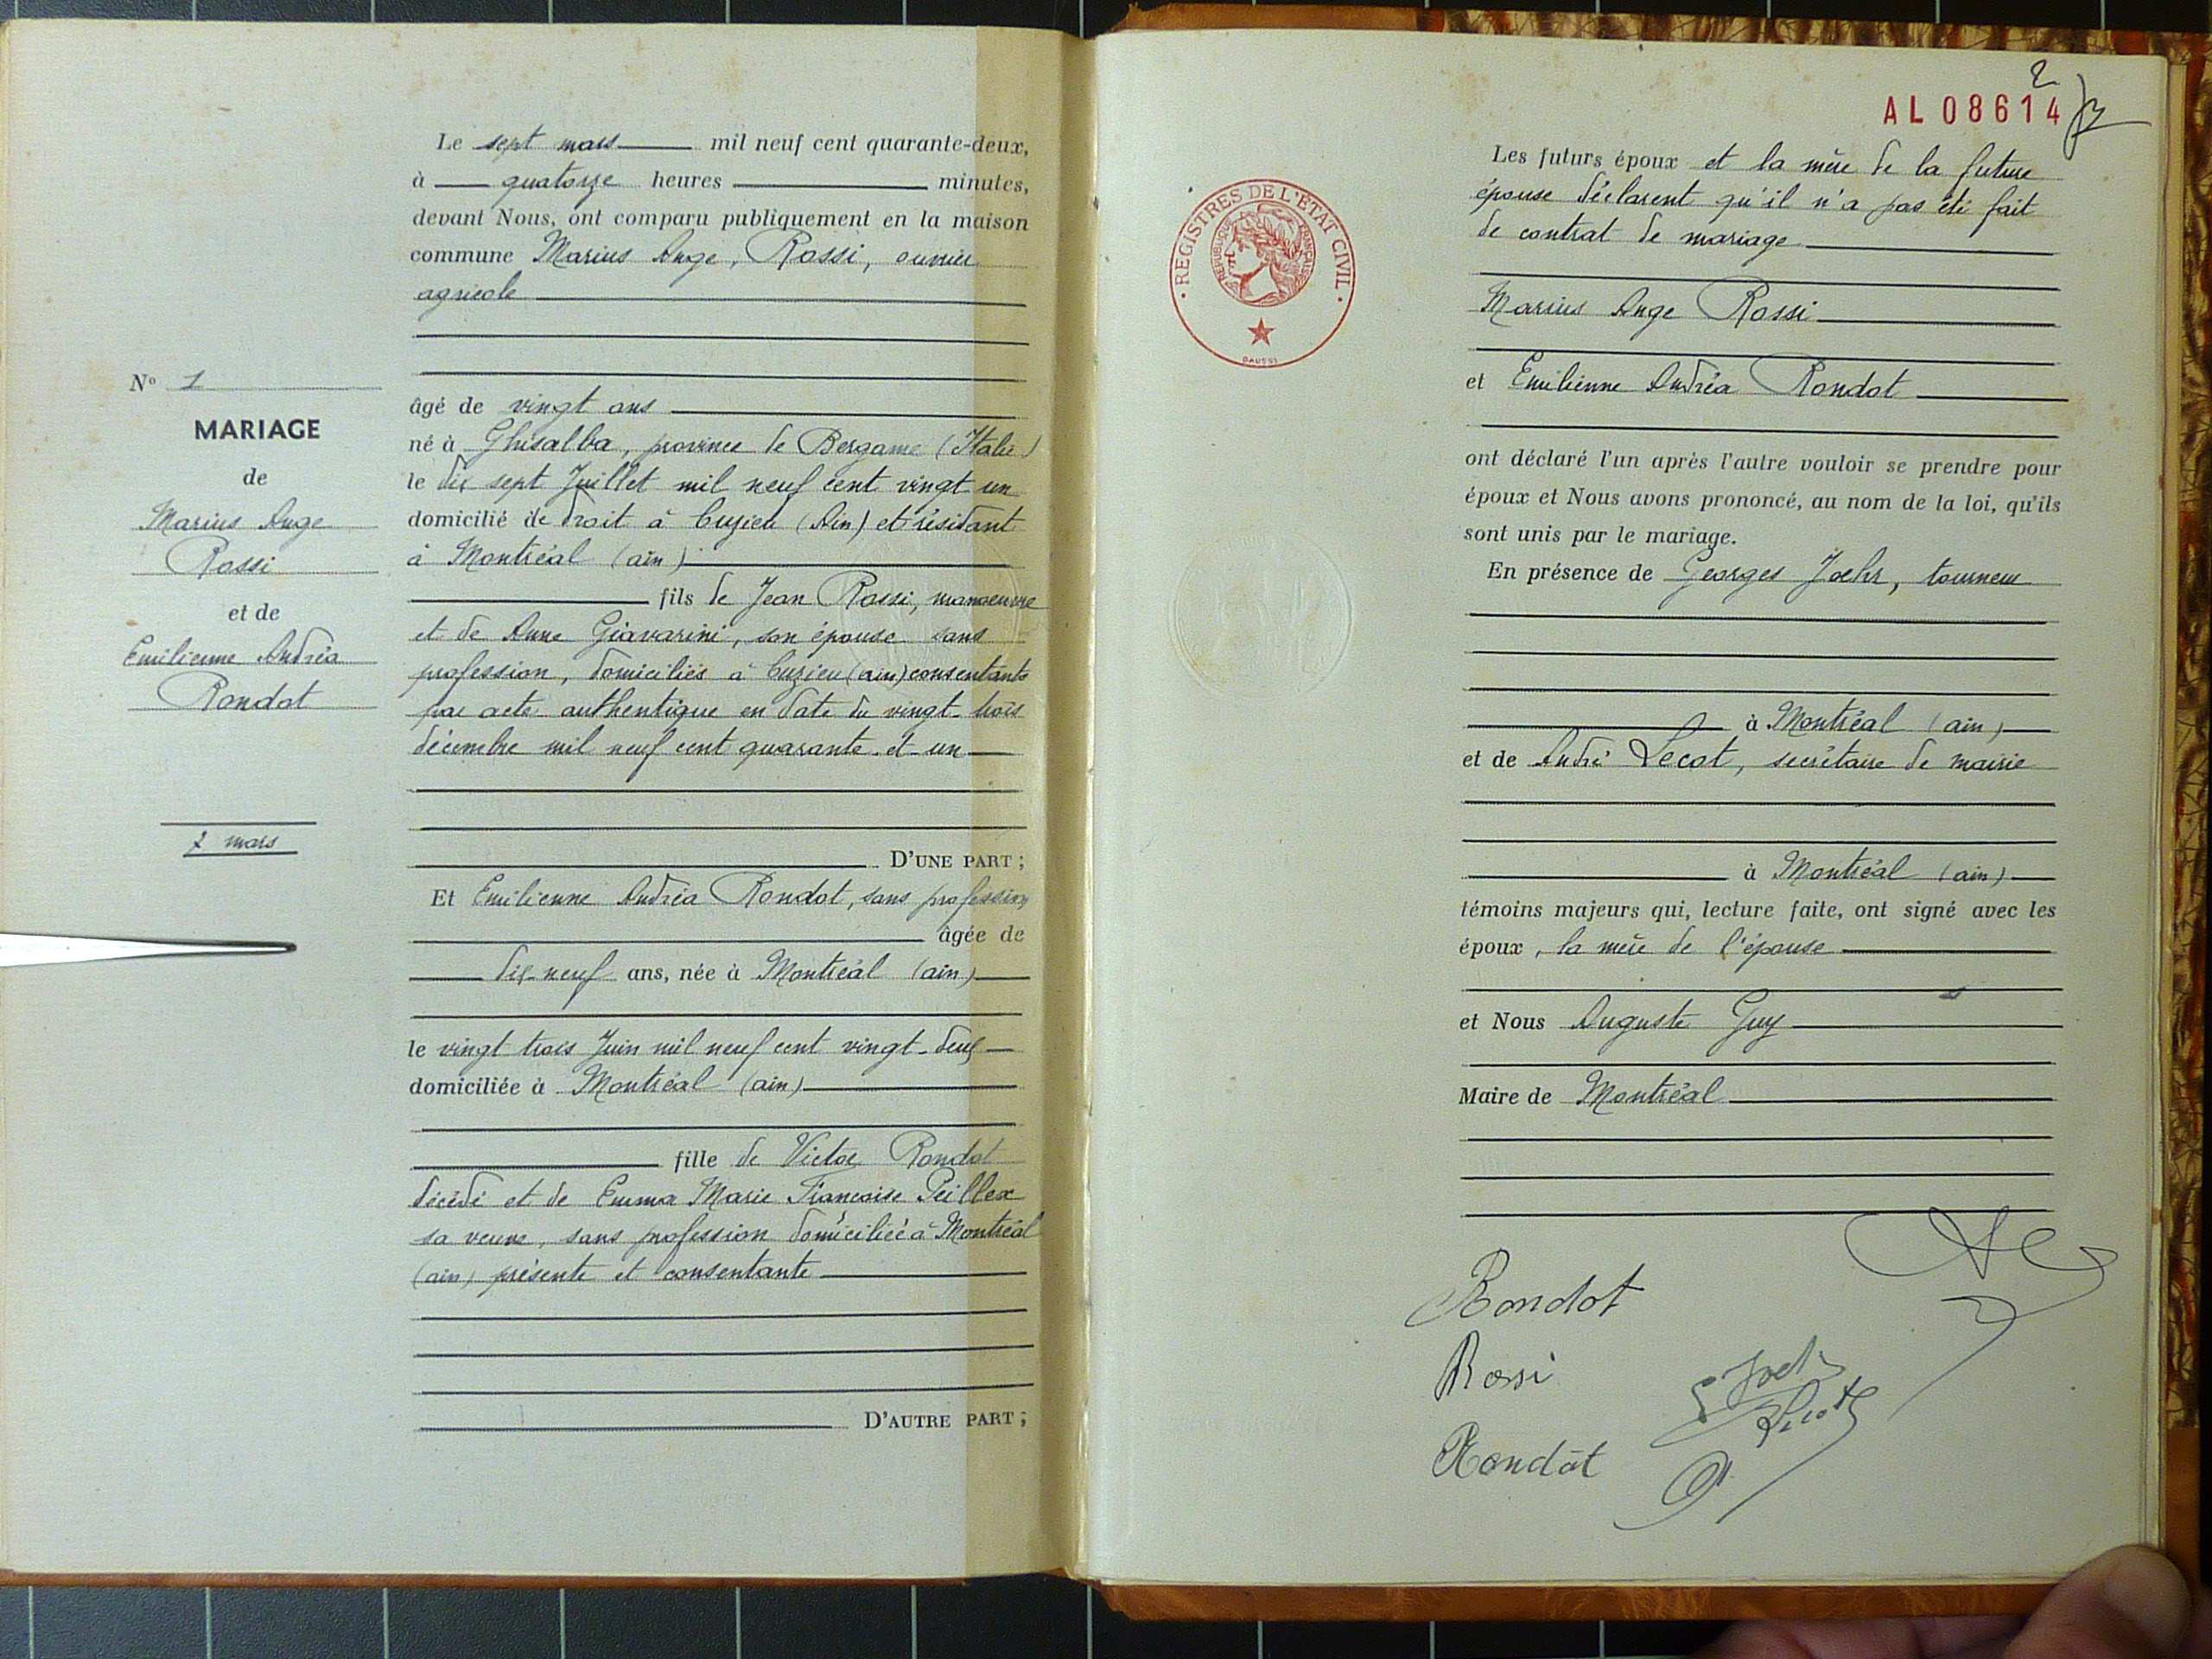 Nº 1
MARIAGE
de
Marius Ange
Rossi
et de
Emilienne Andréa
Rondot
7 mars
Le sept mars mil neuf cent quarante-deux,
à quatorze heures minutes,
devant Nous, ont comparu publiquement en la maison
commune Marius Ange, Rossi, ouvrier
agricole
âgé de vingt ans
né à Ghisalba, province de Bergame (Italie)
le dix sept Juillet mil neuf cent vingt un
domicilié de droit à Cuzieu (Ain) et résidant
à Montréal (ain)
fils de Jean Rossi, manoeuvre
et de Anne Giavarini, son épouse sans
profession, domiciliés à Cuzieu (ain) consentants
par acte authentique en date du vingt-trois
décembre mil neuf cent quarante et un
D'UNE PART ;
Et Emilienne Andréa Rondot, sans profession
âgée de
dix-neuf ans, née à Montréal (ain)
le vingt trois Juin mil neuf cent vingt-deux
domiciliée à Montréal (ain)
fille de Victor Rondot
décédé et de Emma Marie Françoise Peillex
sa veuve, sans profession domiciliée à Montréal
(ain) présente et consentante
D'AUTRE PART ;
2
AL 08614
REGISTRES DE L'ÉTAT CIVIL
RÉPUBLIQUE FRANÇAISE
DAUSSY
Les futurs époux et la mère de la future
épouse déclarent qu'il n'a pas été fait
de contrat de mariage
Marius Ange Rossi
et Emilienne Andréa Rondot
ont déclaré l'un après l'autre vouloir se prendre pour
époux et Nous avons prononcé, au nom de la loi, qu'ils
sont unis par le mariage.
En présence de Georges Joehr, tourneur
à Montréal (ain)
et de André Lecot, secrétaire de mairie
à Montréal (ain)
témoins majeurs qui, lecture faite, ont signé avec les
époux, la mère de l'épouse
et Nous Auguste Guy
Maire de Montréal
Rondot
Rossi
Rondot
Lecot